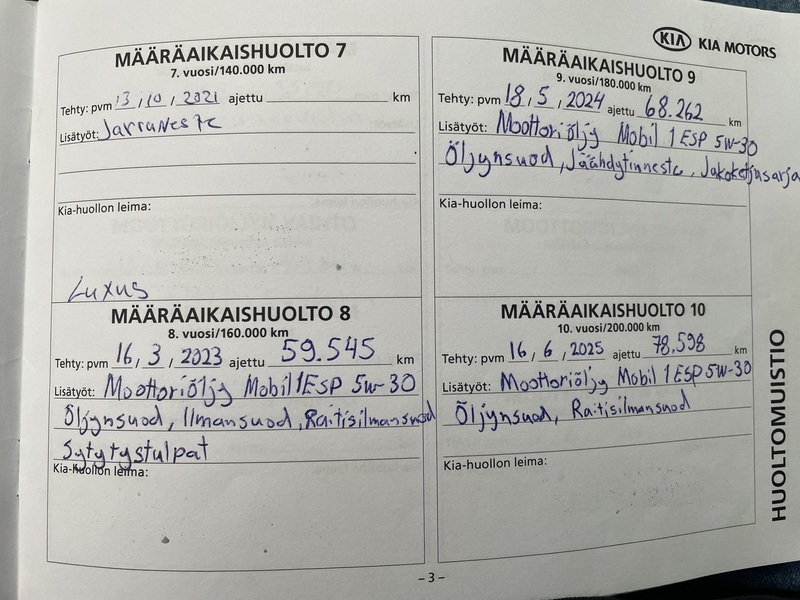 KIA KIA MOTORS
MÄÄRÄAIKAISHUOLTO 7
7. vuosi/140.000 km
Tehty: pvm 13 / 10 / 2021 ajettu km
Lisätyöt: Jarruneste
Kia-huollon leima:
Luxus
MÄÄRÄAIKAISHUOLTO 8
8. vuosi/160.000 km
Tehty: pvm 16 / 3 / 2023 ajettu 59.545 km
Lisätyöt: Moottoriöljy Mobil 1 ESP 5W-30
Öljynsuod, Ilmansuod, Raitisilmansuod
Sytytystulpat
Kia-huollon leima:
MÄÄRÄAIKAISHUOLTO 9
9. vuosi/180.000 km
Tehty: pvm 18 / 5 / 2024 ajettu 68.262 km
Lisätyöt: Moottoriöljy Mobil 1 ESP 5W-30
Öljynsuod, Jäähdytinneste, Jakoketjusarja
Kia-huollon leima:
MÄÄRÄAIKAISHUOLTO 10
10. vuosi/200.000 km
Tehty: pvm 16 / 6 / 2025 ajettu 78.598 km
Lisätyöt: Moottoriöljy Mobil 1 ESP 5W-30
Öljynsuod, Raitisilmansuod
Kia-huollon leima:
HUOLTOMUISTIO
– 3 –